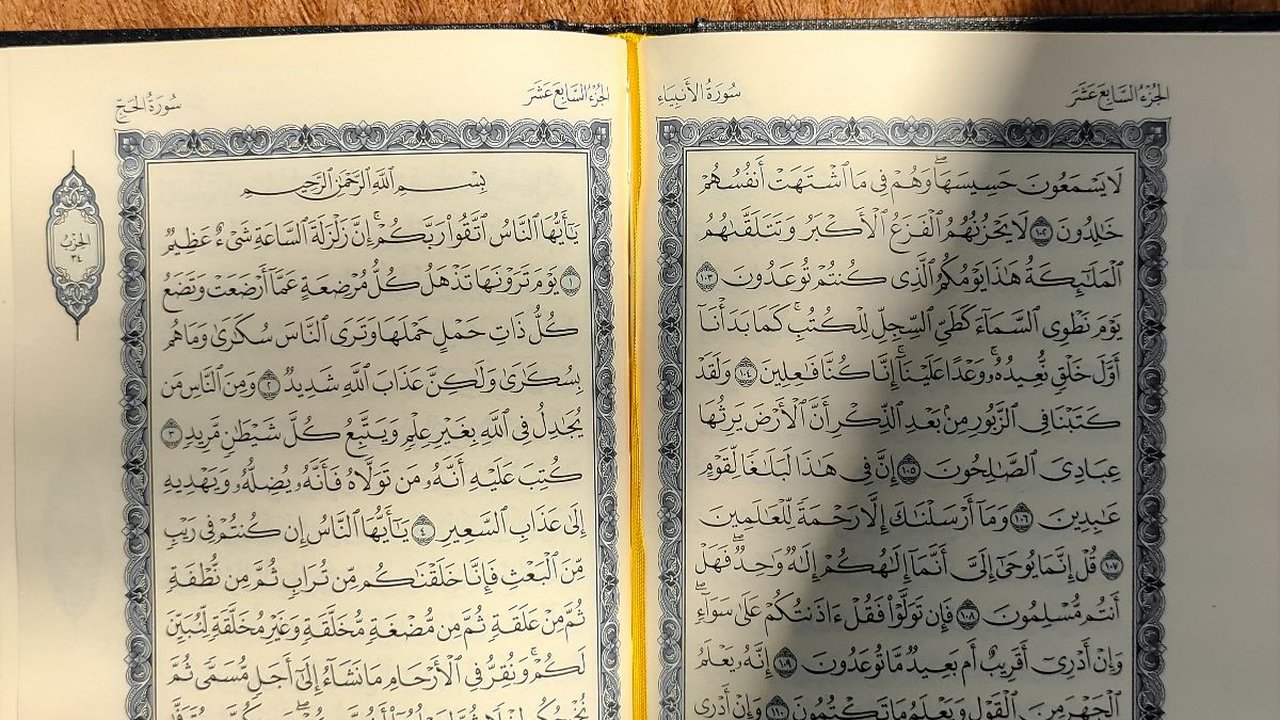 الجُزْءُ السَّابِعَ عَشَرَ
سُورَةُ الأَنْبِيَاءِ
لَا يَسْمَعُونَ حَسِيسَهَاۖ وَهُمْ فِى مَا ٱشْتَهَتْ أَنفُسُهُمْ
خَٰلِدُونَ ١٠٢ لَا يَحْزُنُهُمُ ٱلْفَزَعُ ٱلْأَكْبَرُ وَتَتَلَقَّىٰهُمُ
ٱلْمَلَٰٓئِكَةُ هَٰذَا يَوْمُكُمُ ٱلَّذِى كُنتُمْ تُوعَدُونَ ١٠٣
يَوْمَ نَطْوِى ٱلسَّمَآءَ كَطَىِّ ٱلسِّجِلِّ لِلْكُتُبِۚ كَمَا بَدَأْنَآ
أَوَّلَ خَلْقٍ نُّعِيدُهُۥۚ وَعْدًا عَلَيْنَآۚ إِنَّا كُنَّا فَٰعِلِينَ ١٠٤ وَلَقَدْ
كَتَبْنَا فِى ٱلزَّبُورِ مِنۢ بَعْدِ ٱلذِّكْرِ أَنَّ ٱلْأَرْضَ يَرِثُهَا
عِبَادِىَ ٱلصَّٰلِحُونَ ١٠٥ إِنَّ فِى هَٰذَا لَبَلَٰغًا لِّقَوْمٍ
عَٰبِدِينَ ١٠٦ وَمَآ أَرْسَلْنَٰكَ إِلَّا رَحْمَةً لِّلْعَٰلَمِينَ
١٠٧ قُلْ إِنَّمَا يُوحَىٰٓ إِلَىَّ أَنَّمَآ إِلَٰهُكُمْ إِلَٰهٌ وَٰحِدٌۖ فَهَلْ
أَنتُم مُّسْلِمُونَ ١٠٨ فَإِن تَوَلَّوْا۟ فَقُلْ ءَاذَنتُكُمْ عَلَىٰ سَوَآءٍۖ
وَإِنْ أَدْرِىٓ أَقَرِيبٌ أَم بَعِيدٌ مَّا تُوعَدُونَ ١٠٩ إِنَّهُۥ يَعْلَمُ
ٱلْجَهْرَ مِنَ ٱلْقَوْلِ وَيَعْلَمُ مَا تَكْتُمُونَ ١١٠ وَإِنْ أَدْرِى
الجُزْءُ السَّابِعَ عَشَرَ
سُورَةُ الحَجِّ
الحِزْبُ
٣٤
بِسْمِ ٱللَّهِ ٱلرَّحْمَٰنِ ٱلرَّحِيمِ
يَٰٓأَيُّهَا ٱلنَّاسُ ٱتَّقُوا۟ رَبَّكُمْۚ إِنَّ زَلْزَلَةَ ٱلسَّاعَةِ شَىْءٌ عَظِيمٌ
١ يَوْمَ تَرَوْنَهَا تَذْهَلُ كُلُّ مُرْضِعَةٍ عَمَّآ أَرْضَعَتْ وَتَضَعُ
كُلُّ ذَاتِ حَمْلٍ حَمْلَهَا وَتَرَى ٱلنَّاسَ سُكَٰرَىٰ وَمَا هُم
بِسُكَٰرَىٰ وَلَٰكِنَّ عَذَابَ ٱللَّهِ شَدِيدٌ ٢ وَمِنَ ٱلنَّاسِ مَن
يُجَٰدِلُ فِى ٱللَّهِ بِغَيْرِ عِلْمٍ وَيَتَّبِعُ كُلَّ شَيْطَٰنٍ مَّرِيدٍ ٣
كُتِبَ عَلَيْهِ أَنَّهُۥ مَن تَوَلَّاهُ فَأَنَّهُۥ يُضِلُّهُۥ وَيَهْدِيهِ
إِلَىٰ عَذَابِ ٱلسَّعِيرِ ٤ يَٰٓأَيُّهَا ٱلنَّاسُ إِن كُنتُمْ فِى رَيْبٍ
مِّنَ ٱلْبَعْثِ فَإِنَّا خَلَقْنَٰكُم مِّن تُرَابٍ ثُمَّ مِن نُّطْفَةٍ
ثُمَّ مِنْ عَلَقَةٍ ثُمَّ مِن مُّضْغَةٍ مُّخَلَّقَةٍ وَغَيْرِ مُخَلَّقَةٍ لِّنُبَيِّنَ
لَكُمْۚ وَنُقِرُّ فِى ٱلْأَرْحَامِ مَا نَشَآءُ إِلَىٰٓ أَجَلٍ مُّسَمًّى ثُمَّ